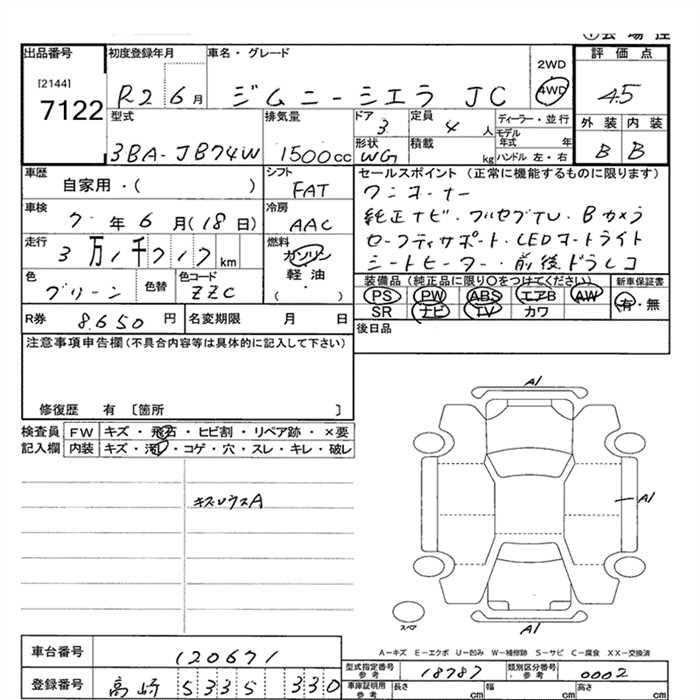 出品番号
[2144]
7122
初度登録年月
R2 6月
車名・グレード
ジムニーシエラ JC
2WD
4WD
評価点
4.5
型式
3BA-JB74W
排気量
1500cc
ドア
3
形状
WG
定員
4人
積載
kg
ディーラー・並行
モデル
年式 年
ハンドル 左・右
外装 内装
B B
車歴
自家用・( )
シフト
FAT
セールスポイント (正常に機能するものに限ります)
ワンオーナー
純正ナビ・フルセグTV・Bカメラ
セーフティサポート・LEDオートライト
シートヒーター・前後ドラレコ
車検
7年6月(18日)
冷房
AAC
走行
3万1千717km
燃料
ガソリン
軽油
・( )
色
グリーン
色替
色コード
ZZC
装備品 (純正品に限り○をつけてください)
PS PW ABS エアB AW
SR ナビ TV カワ
新車保証書
有・無
R券 8.650円
名変期限 月 日
後日品
注意事項申告欄(不具合内容等は具体的に記入して下さい)
修復歴 有 [箇所 ]
検査員 FW キズ・飛石・ヒビ割・リペア跡・×要
記入欄 内装 キズ・汚れ・コゲ・穴・スレ・キレ・破レ
キズウスA
A1
A1
A1
スペア
A-キズ E-エクボ U-凹み W-補修跡 S-サビ C-腐食 XX-交換済
車台番号 120671
登録番号 高崎 5335 330
型式指定番号 参考 18787
類別区分番号 参考 0002
車庫証明用 参考 長さ cm 幅 cm 高さ cm